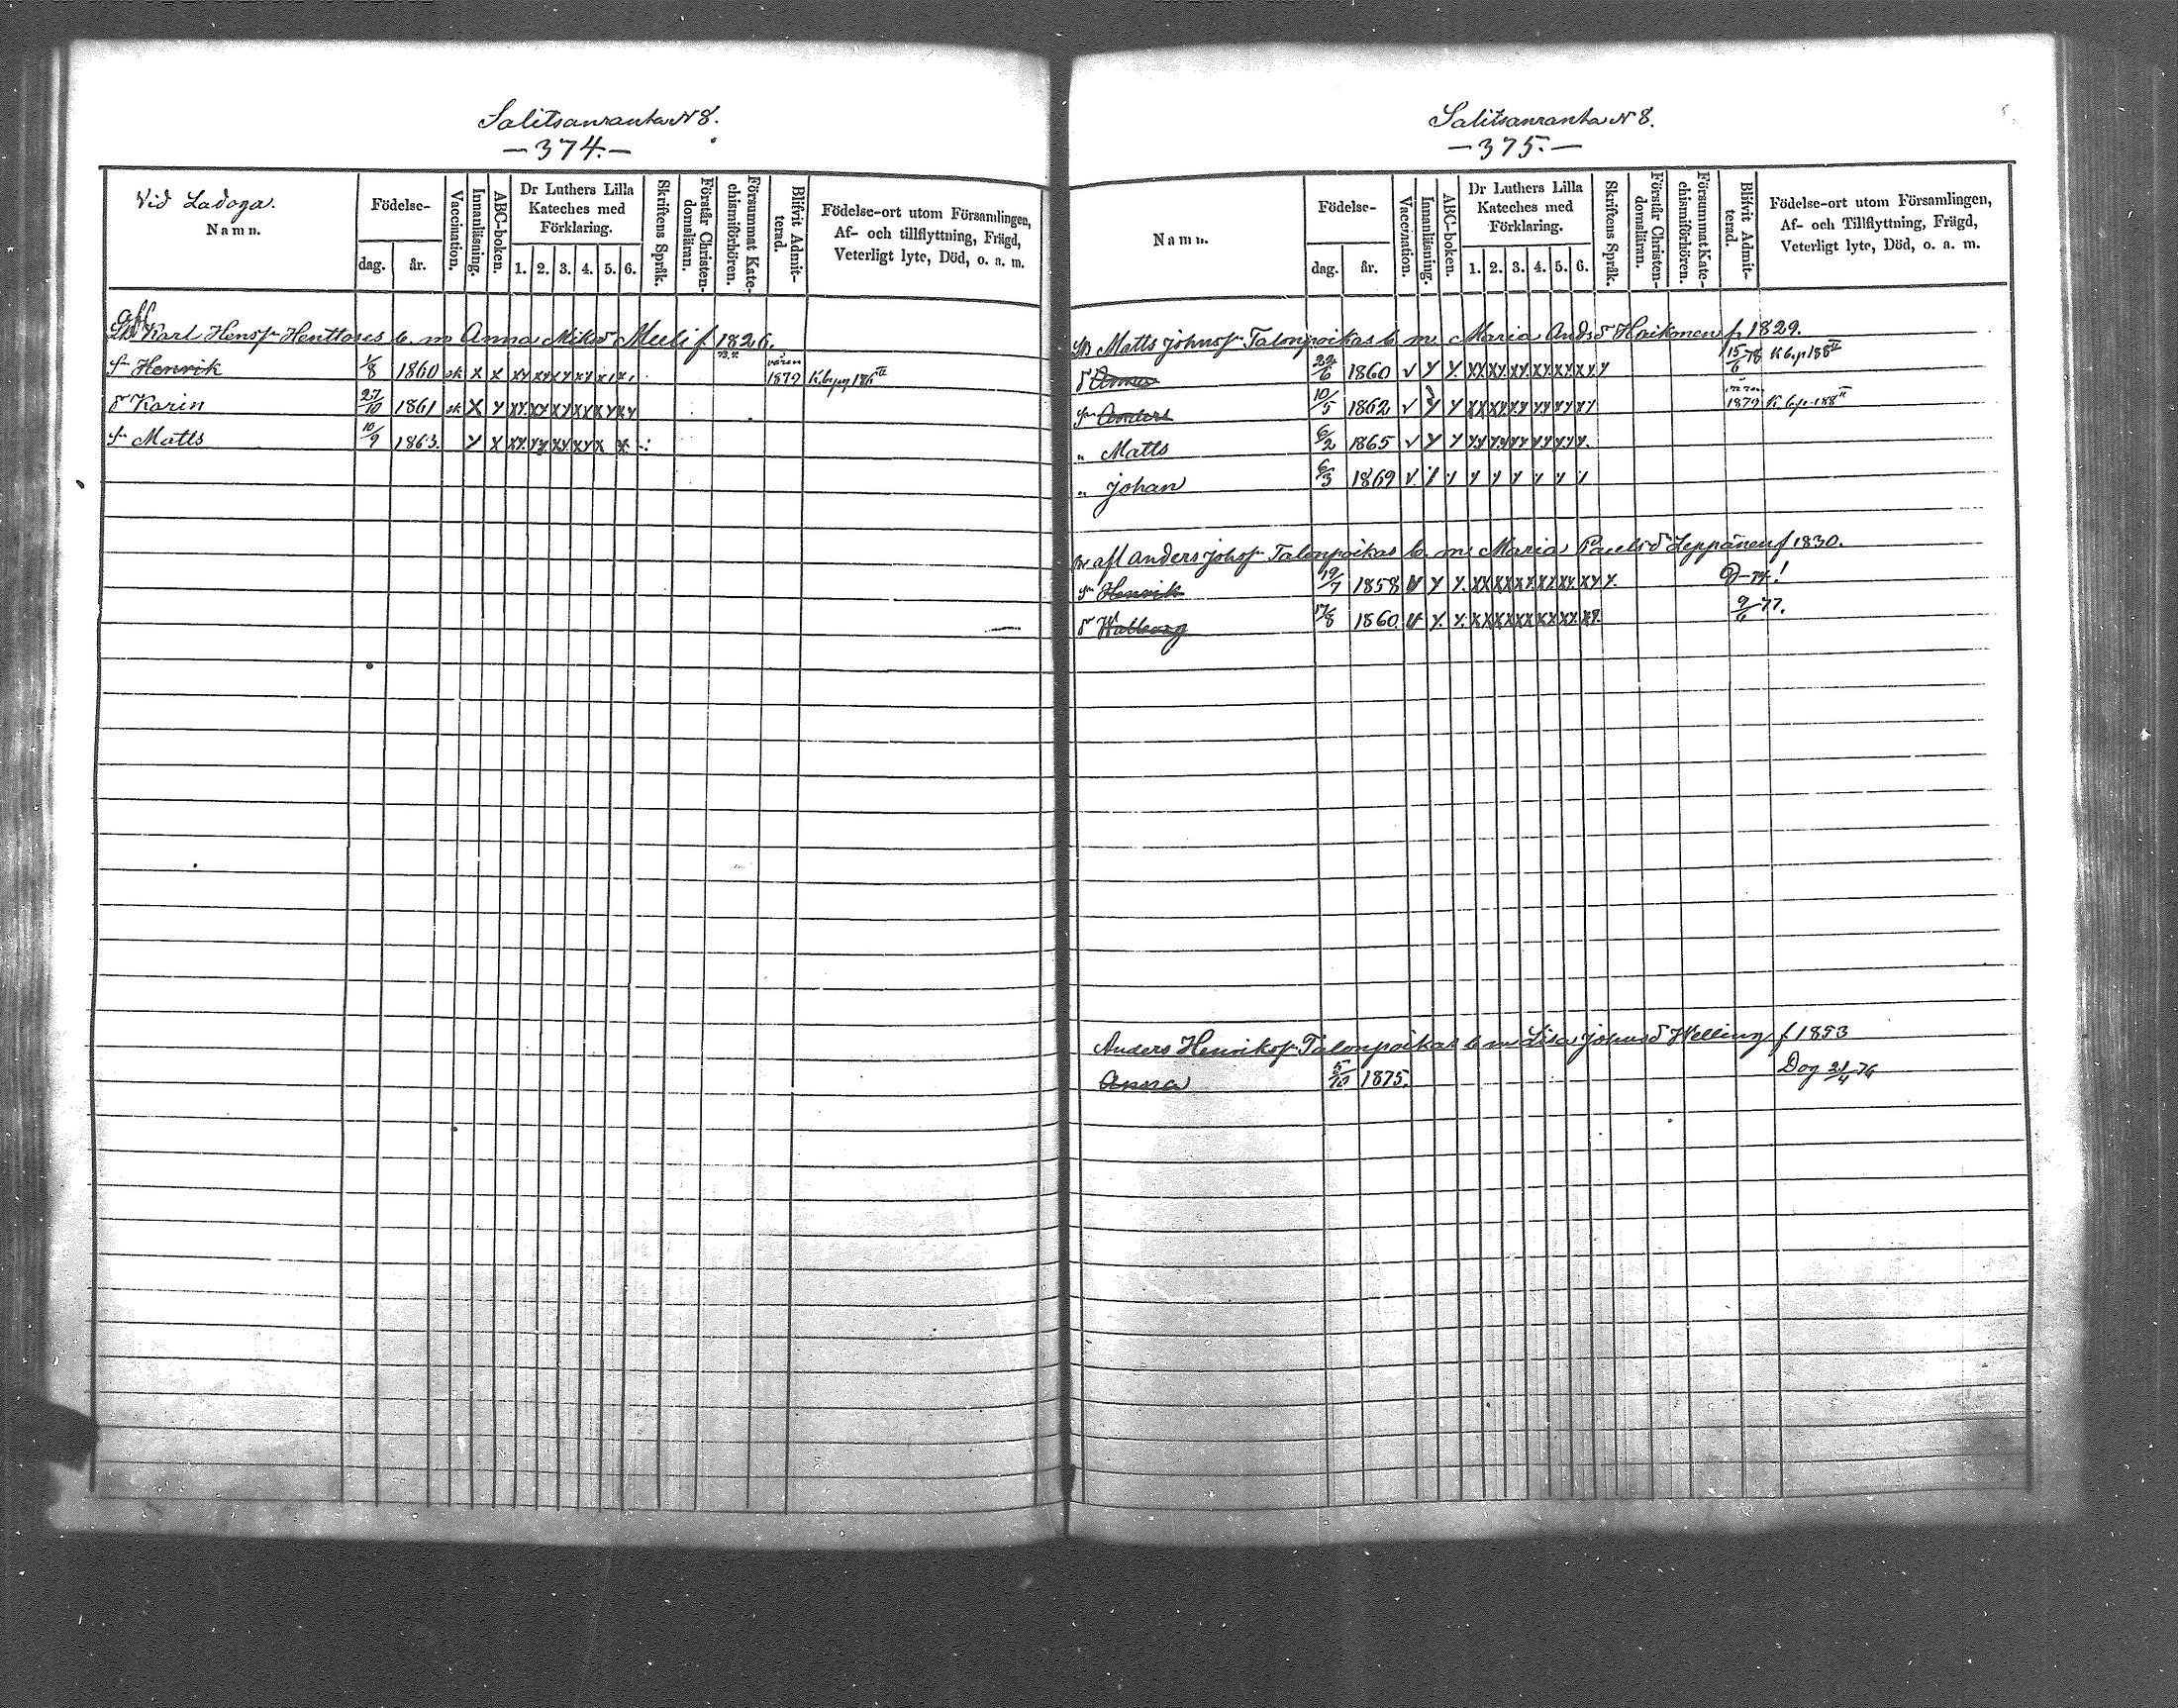 Salitsanranta N 8.
—374.—
Vid Ladoga.
Namn.
Födelse-
dag.
år.
Vaccination.
Innanläsning.
ABC-boken.
Dr Luthers Lilla Kateches med Förklaring.
1. 2. 3. 4. 5. 6.
Skriftens Språk.
Förstår Christendomsläran.
Försummat Katechismiförhören.
Blifvit Admitterad.
Födelse-ort utom Församlingen, Af- och tillflyttning, Frägd, Veterligt lyte, Död, o. a. m.
afl
Karl Hensf Henttoses b. m Anna Miksd Meeli f 1826.
sn Henrik 1/8 1860 x x våren 1879 K.b. pg 186 II
dr Karin 27/10 1861 x y
sn Matts 10/9 1863. y x
Salitsanranta N 8.
—375.—
Namn.
Födelse-
dag.
år.
Vaccination.
Innanläsning.
ABC-boken.
Dr Luthers Lilla Kateches med Förklaring.
1. 2. 3. 4. 5. 6.
Skriftens Språk.
Förstår Christendomsläran.
Försummat Katechismiförhören.
Blifvit Admitterad.
Födelse-ort utom Församlingen, Af- och Tillflyttning, Frägd, Veterligt lyte, Död, o. a. m.
Matts Johnsf Talonpoikas b. m Maria Andsd Haikonen f 1829.
dr Anna 22/6 1860 v y y 15/6 78 K b. p 188 II
sn Anders 10/5 1862 v y y våren 1879 K b. p. 188 II
„ Matts 6/2 1865 v y y
„ Johan 6/3 1869 v
afl Anders Johsf Talonpoikas b. m Maria Paulsd Leppänen f 1830.
sn Henrik 19/7 1858 y y
dr Walborg 17/8 1860 y y 9/6 77.
Anders Henriksf Talonpoikas b m Lisa Johnsd Welling f 1853
Anna 5/10 1875. Dog 21/4 76